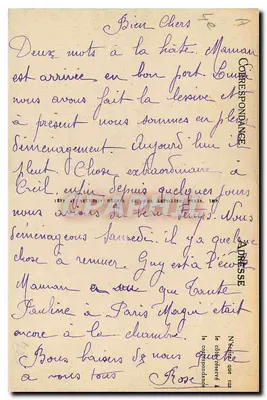 Bien Chers
Deux mots à la hâte. Maman
est arrivée en bon port. Lundi
nous avons fait la lessive et
à présent nous sommes en plein
déménagement Aujourd'hui il
pleut. Chose extraordinaire à
Creil, enfin depuis quelques jours
nous avions du beau temps. Nous
déménageons Samedi. il y a quelque
chose à remuer. Guy est à l'école
Maman a su que Tante
Pauline à Paris était
encore à la chambre.
Bons baisers de nous
à vous tous Rose
CORRESPONDANCE
ADRESSE